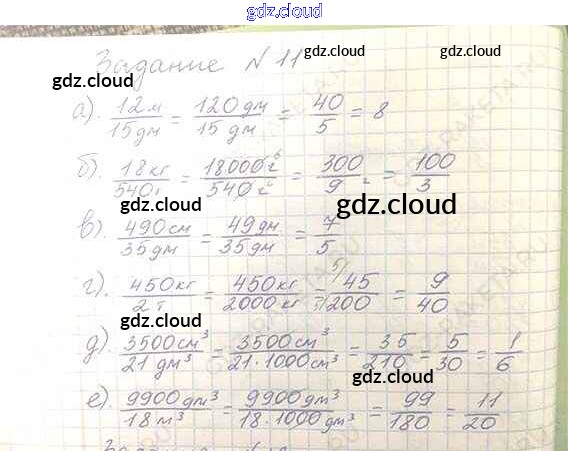 gdz.cloud
Задание N 11 gdz.cloud
gdz.cloud gdz.cloud
а). 12м/15дм = 120дм/15дм = 40/5 = 8
б). 18кг/540г = 18000г/540г = 300/9 = 100/3
gdz.cloud
в). 490см/35дм = 49дм/35дм = 7/5
gdz.cloud
г). 450кг/2т = 450кг/2000кг = 45/200 = 9/40
gdz.cloud
д). 3500см³/21дм³ = 3500см³/21·1000см³ = 35/210 = 5/30 = 1/6
gdz.cloud
е). 9900дм³/18м³ = 9900дм³/18·1000дм³ = 99/180 = 11/20
gdz.cloud gdz.cloud